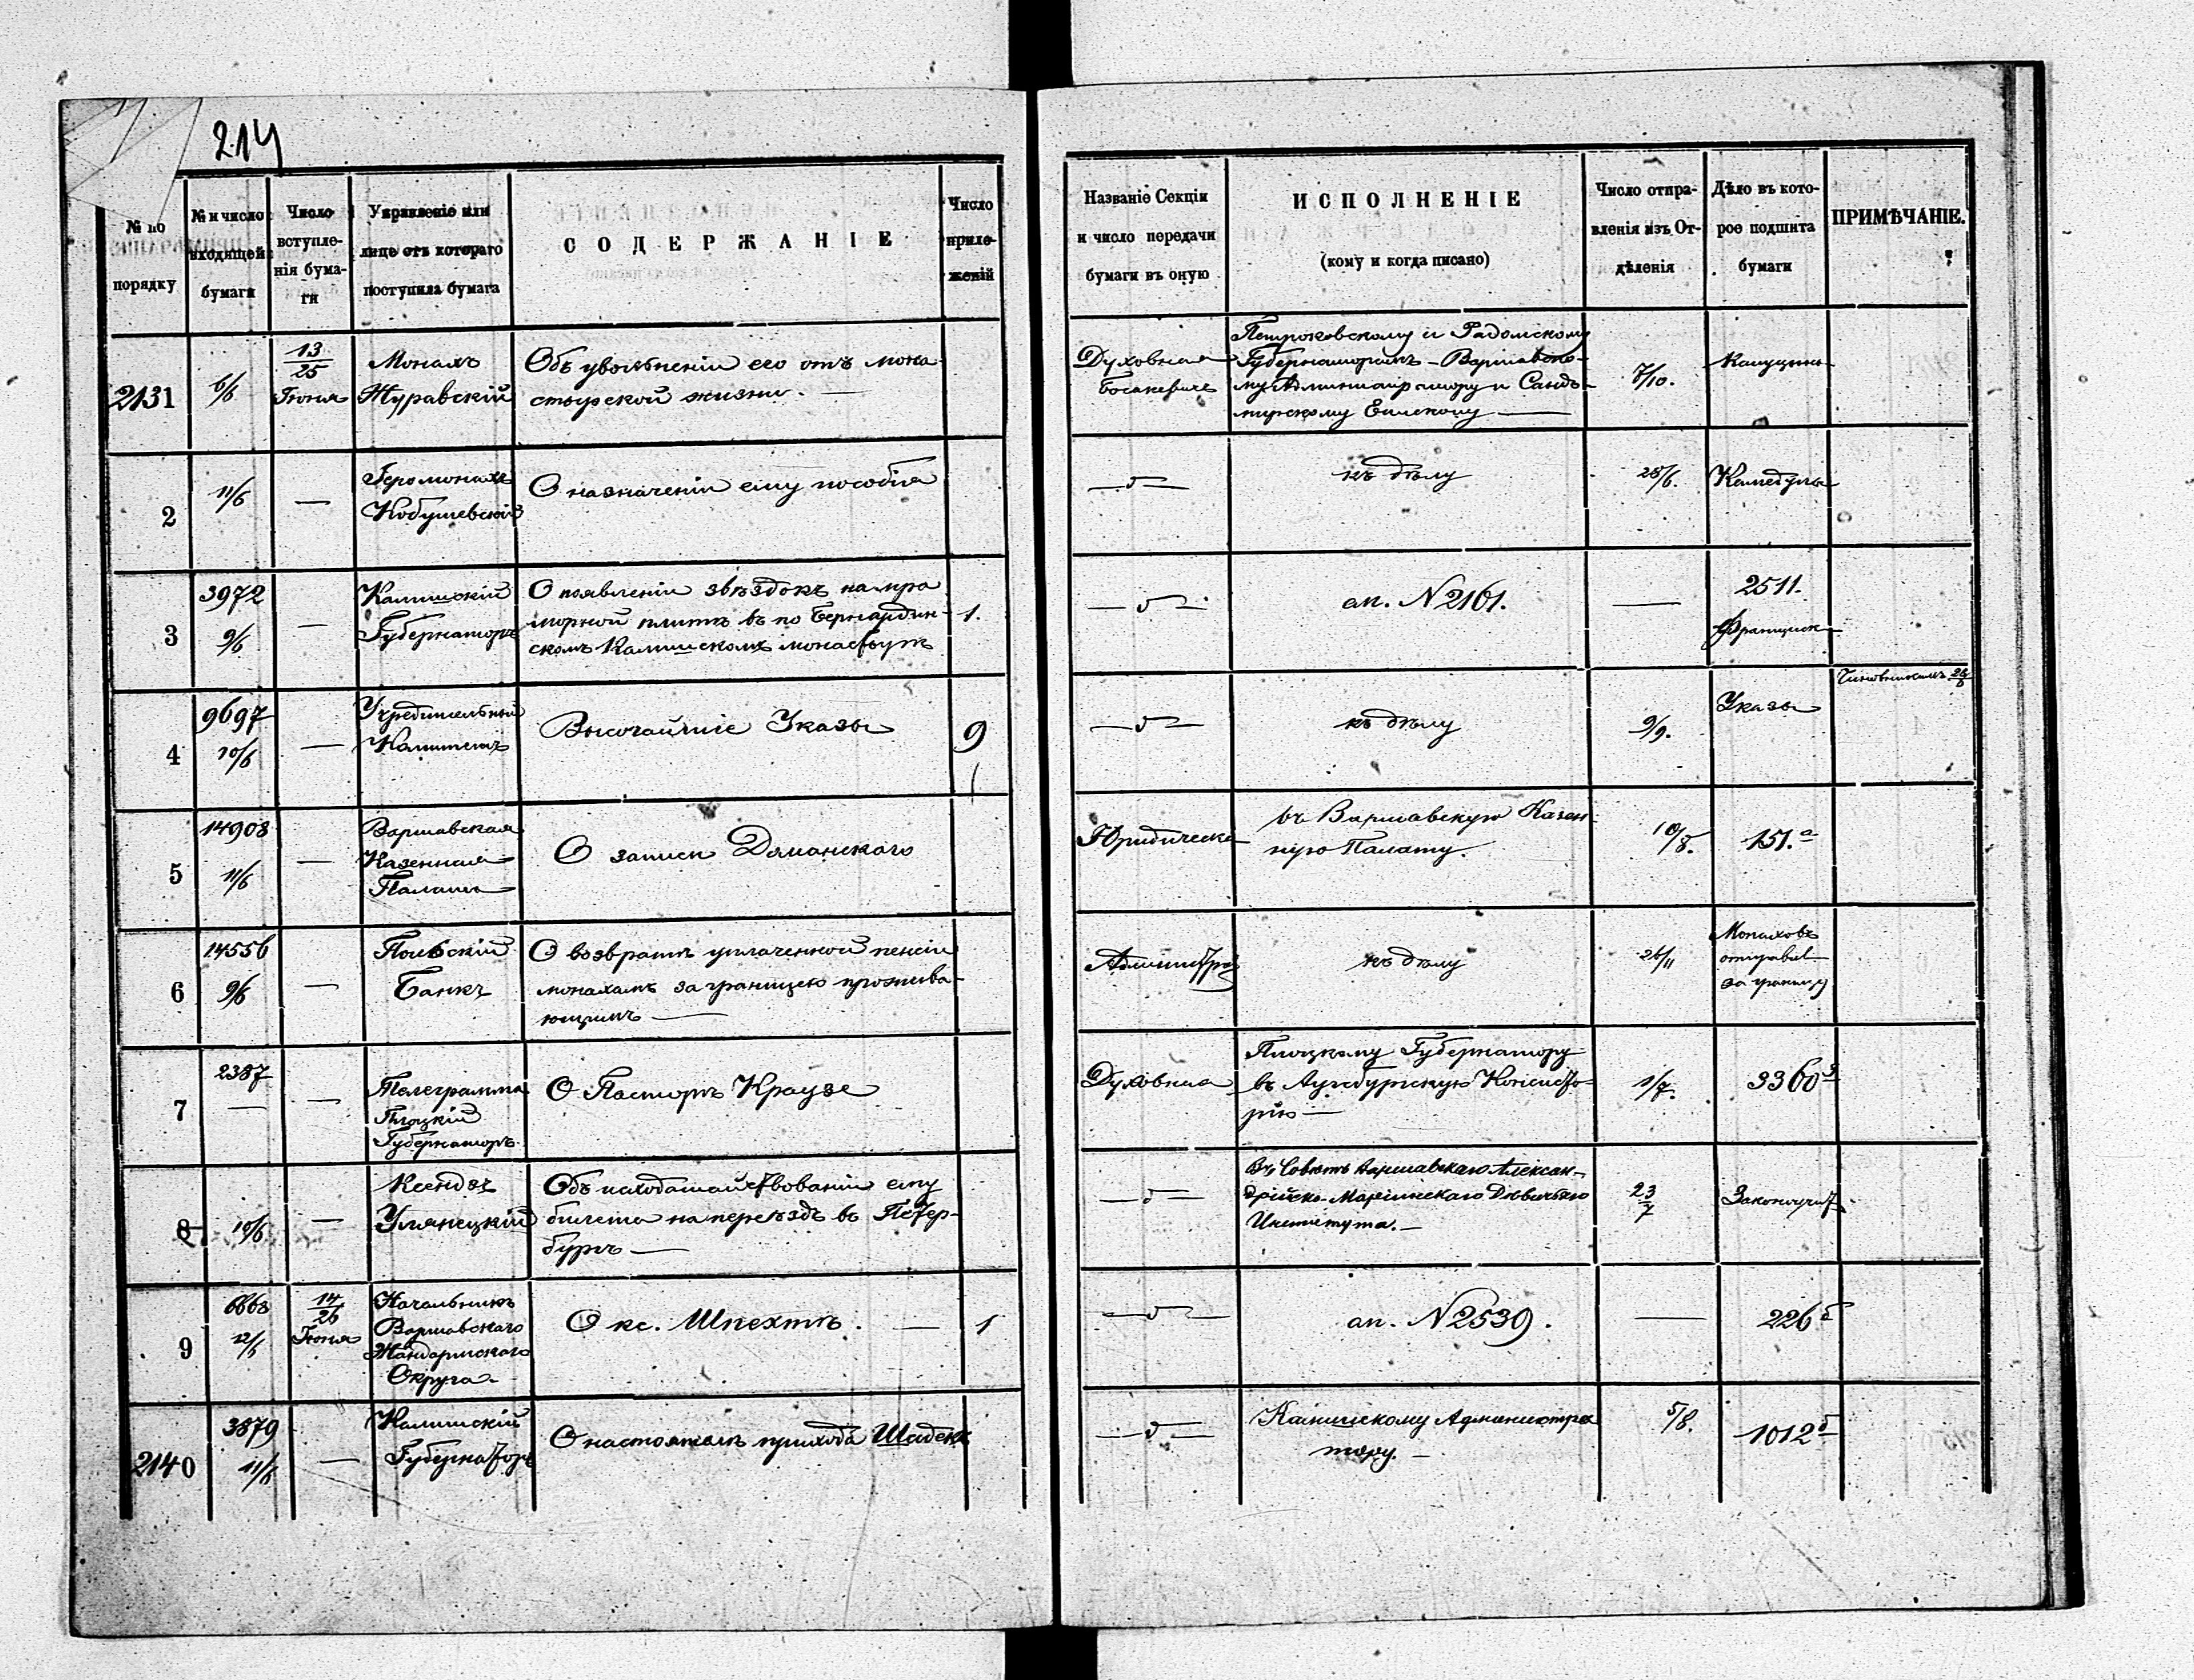 214
№ по порядку
№ и число входящей бумаги
Число вступле-нія бума-ги
Управленіе или лице отъ котораго поступила бумага
СОДЕРЖАНІЕ
Число прило-женій
Названіе Секціи и число передачи бумаги въ оную
ИСПОЛНЕНІЕ
(кому и когда писано)
Число отпра-вленія изъ От-дѣленія
Дѣло въ кото-рое подшита бумаги
ПРИМѢЧАНІЕ.
2131
6/6
13/25 Іюня
Монахъ
Журавскій
Объ увольненіи его отъ мона-
стырской жизни.
Духовная
Босакевичъ
Петроковскому и Радомскому
Губернаторамъ - Варшавско-
му Администратору и Сандо-
мирскому Епископу
7/10.
Капуцины
2
11/6
Іеромонахъ
Кобушевскій
О назначеніи ему пособія
къ дѣлу
28/6.
Камедулы
3
3972
9/6
Калишскій
Губернаторъ
О появленіи звѣздокъ на мра
морной плитѣ въ по Бернардин-
скомъ Калишскомъ монастырѣ
1.
ап. N 2161.
2511.
Францискан
4
9697
10/6
Учредительный
Комитетъ
Высочайшіе Указы
9
къ дѣлу
9/9.
Указы
5
14908
11/6
Варшавская
Казенная
Палата
О записи Доманскаго
Юридическа
въ Варшавскую Казен-
ную Палату.
10/8.
151.а
6
14556
9/6
Польскій
Банкъ
О возвратѣ уплаченной пенсіи
монахамъ за границею прожива-
ющимъ
Администра
къ дѣлу
26/11
Монаховъ
отправл
за границу
7
2387
Телеграмма
Плоцкій
Губернаторъ.
О Пасторѣ Краузе
Духовная
Плоцкому Губернатору
въ Аугсбургскую Консисто-
рію
1/7.
3360
8
10/6
Ксендзъ
Улянецкій
Объ исходатайствованіи ему
билета на переѣздъ въ Петер-
бургъ
Въ Совѣтъ Варшавскаго Алексан-
дрійско-Маріинскаго Дѣвичьяго
Института.
23/7
Законоучит
9
6668
12/6
14/26 Іюня
Начальникъ
Варшавскаго
Жандармскаго
Округа
О кс. Шпехтѣ.
1
ап. N 2539.
226 б
2140
3879
11/6
Калишскій
Губернаторъ
О настоятелѣ прихода Шадекъ
Калишскому Администра
тору.
5/8.
1012 б